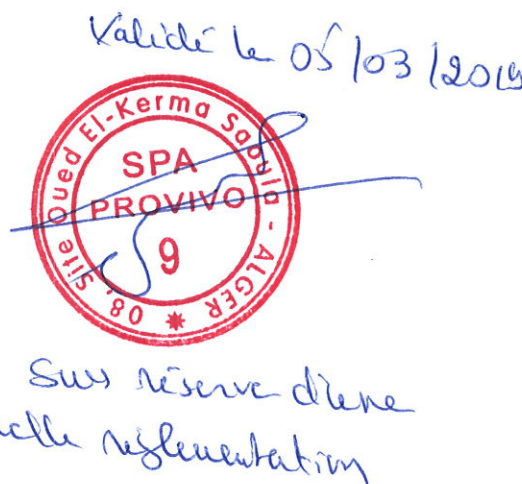 Validé le 05/03/2019
08, Site Oued El-Kerma Saoula - ALGER
SPA
PROVIVO
9
Sous réserve d'une
nouvelle réglementation